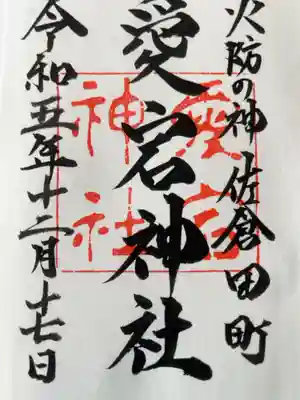 火防の神 佐倉 田町
愛宕神社
愛宕
神社
令和五年十二月十七日